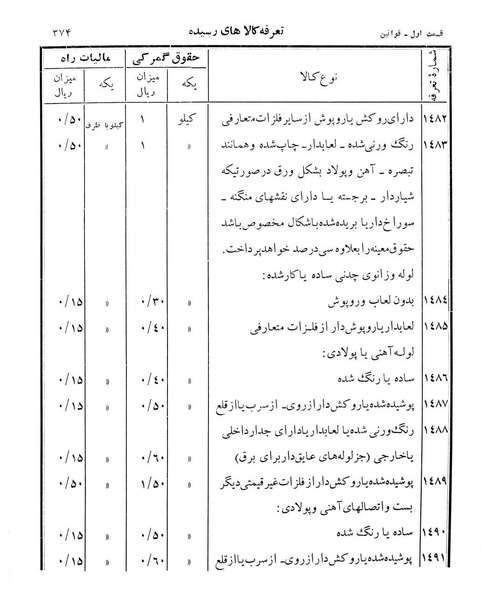 قسمت اول - قوانین تعرفه کالاهای رسیده ۳۷۴
شمارهٔ تعرفه نوع کالا حقوق گمرکی مالیات راه
یکه میزان ریال یکه میزان ریال
۱۴۸۲ دارای روکش یاروپوش ازسایرفلزات متعارفی کیلو ۱ کیلو با ظرف ۰/۵۰
۱۴۸۳ رنگ ورنی شده - لعابدار - چاپ شده وهمانند » ۱ » ۰/۵۰
تبصره - آهن وپولاد بشکل ورق درصورتیکه
شیاردار - برجسته یا دارای نقشهای منگنه -
سوراخ داریا بریده شده باشکال مخصوص باشد
حقوق معینه رابعلاوه سی درصد خواهد پرداخت.
لوله وزانوی چدنی ساده یاکارشده:
۱۴۸۴ بدون لعاب وروپوش » ۰/۳۰ » ۰/۱۵
۱۴۸۵ لعابداریاروپوش دار ازفلزات متعارفی » ۰/۴۰ » ۰/۱۵
لوله آهنی یا پولادی:
۱۴۸۶ ساده یا رنگ شده » ۰/۴۰ » ۰/۱۵
۱۴۸۷ پوشیده شده یاروکش دارازروی - ازسرب یاازقلع » ۰/۵۰ » ۰/۱۵
۱۴۸۸ رنگ ورنی شده یا لعابدار یادارای جدارداخلی
یاخارجی (جزلوله های عایق داربرای برق) » ۰/۶۰ » ۰/۱۵
۱۴۸۹ پوشیده شده یاروکش دارازفلزات غیرقیمتی دیگر » ۱/۵۰ » ۰/۵۰
بست واتصالهای آهنی وپولادی:
۱۴۹۰ ساده یا رنگ شده » ۰/۵۰ » ۰/۱۵
۱۴۹۱ پوشیده شده یاروکش دارازروی - ازسرب یاازقلع » ۰/۶۰ » ۰/۱۵